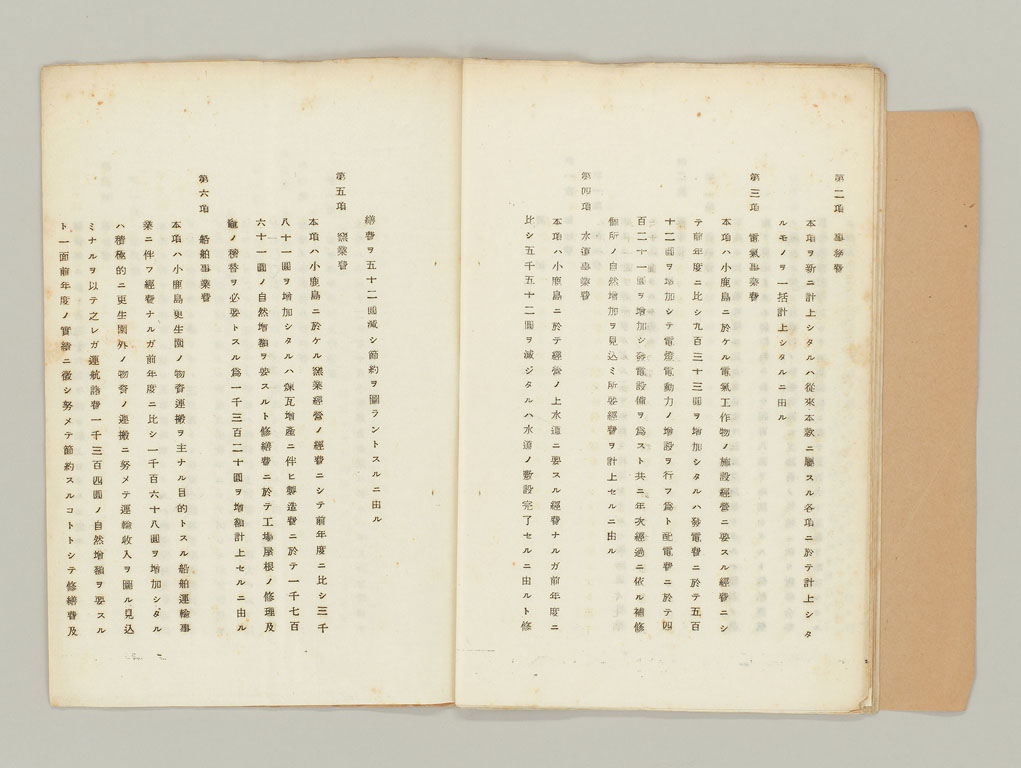 第二項　事務費
本項ヲ新ニ計上シタルハ從來本款ニ屬スル各項ニ於テ計上シタ
ルモノヲ一括計上シタルニ由ル
第三項　電氣事業費
本項ハ小鹿島ニ於ケル電氣工作物ノ施設經營ニ要スル經費ニシ
テ前年度ニ比シ九百三十三圓ヲ增加シタルハ發電費ニ於テ五百
十二圓ヲ增加シテ電燈電動力ノ增設ヲ行フ爲ト配電費ニ於テ四
百二十一圓ヲ增加シ發電設備ヲ爲スト共ニ年次經過ニ依ル補修
個所ノ自然增加ヲ見込ミ所要經費ヲ計上セルニ由ル
第四項　水道事業費
本項ハ小鹿島ニ於テ經營ノ上水道ニ要スル經費ナルガ前年度ニ
比シ五千五十二圓ヲ減ジタルハ水道ノ敷設完了セルニ由ルト修
繕費ヲ五十二圓減シ節約ヲ圖ラントスルニ由ル
第五項　窯業費
本項ハ小鹿島ニ於ケル窯業經營ノ經費ニシテ前年度ニ比シ三千
八十一圓ヲ增加シタルハ煉瓦增產ニ伴ヒ製造費ニ於テ一千七百
六十一圓ノ自然增額ヲ要スルト修繕費ニ於テ工場屋根ノ修理及
竈ノ積替ヲ必要トスル爲一千三百二十圓ヲ增額計上セルニ由ル
第六項　船舶事業費
本項ハ小鹿島更生園ノ物資運搬ヲ主ナル目的トスル船舶運輸事
業ニ伴フ經費ナルガ前年度ニ比シ一千百六十八圓ヲ增加シタル
ハ積極的ニ更生園外ノ物資ノ運搬ニ努メテ運輸收入ヲ圖ル見込
ミナルヲ以テ之レガ運航諸費一千三百四圓ノ自然增額ヲ要スル
ト一面前年度ノ實績ニ徵シ努メテ節約スルコトトシテ修繕費及